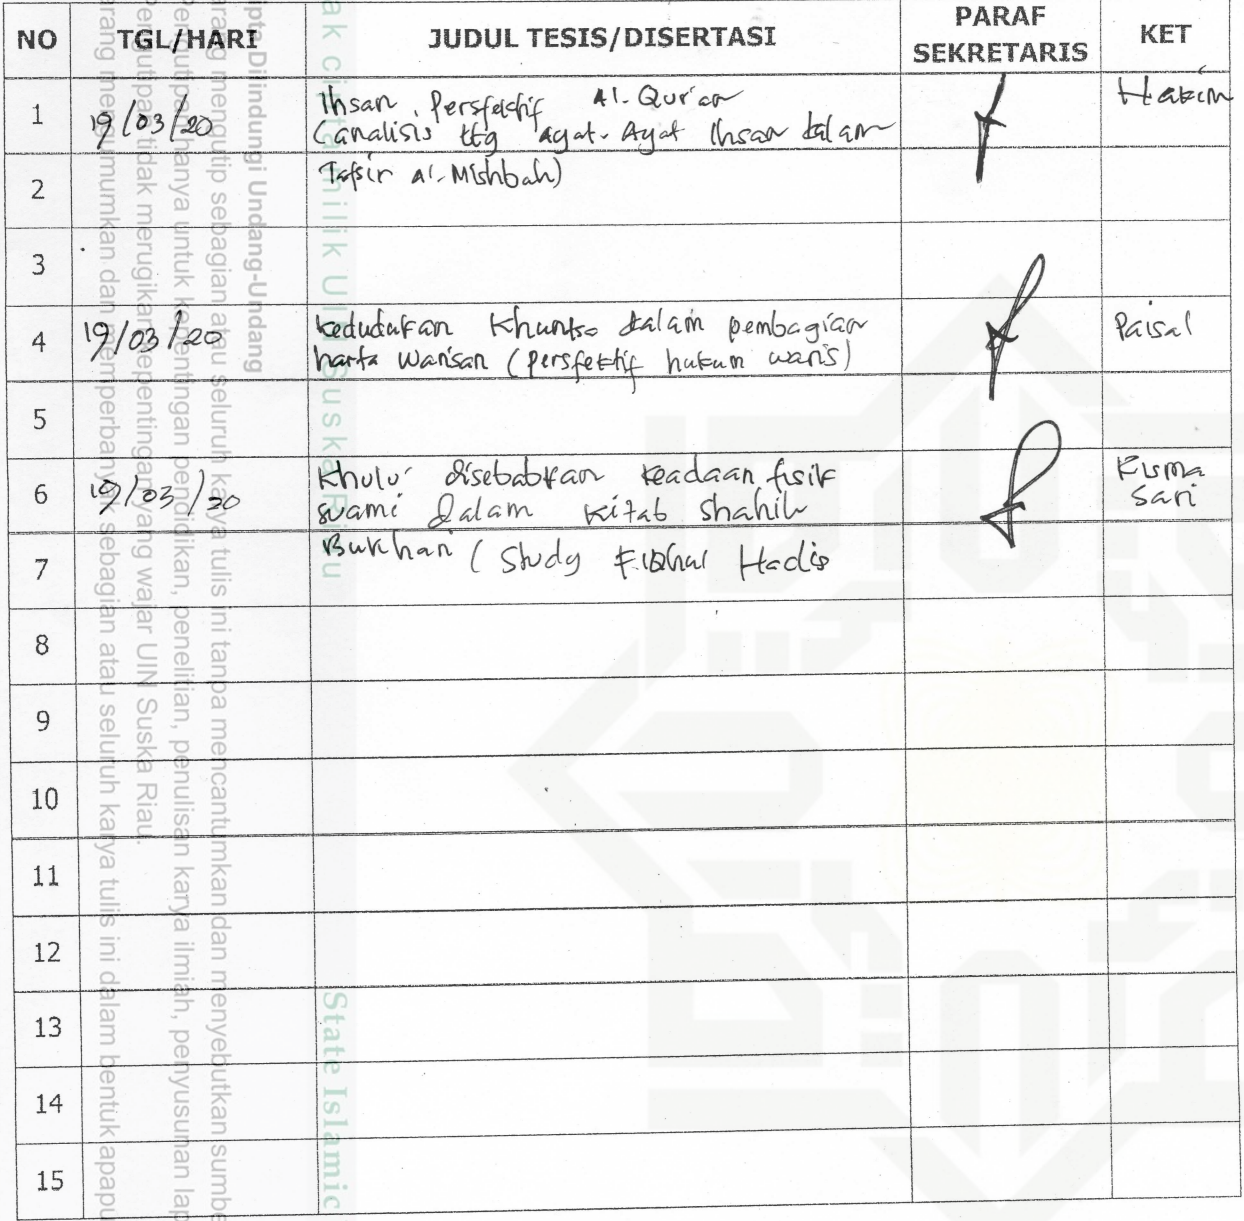 NO TGL/HARI JUDUL TESIS/DISERTASI PARAF SEKRETARIS KET
1 19/03/20 Ihsan Persfektif Al-Qur'an Hakim
(analisis ttg ayat-Ayat Ihsan dalam
2 Tafsir Al-Mishbah)
3
4 19/03/20 kedudukan Khuntsa dalam pembagian Paisal
harta warisan (persfektif hukum waris)
5
6 19/03/20 Khulu' disebabkan keadaan fisik Kusma
suami dalam kitab shahih Sari
7 Bukhari (Study FIQhul Hadis
8
9
10
11
12
13
14
15
ak cipta milik UIN Suska Riau
State Islamic
ipta Dilindungi Undang-Undang
arang mengutip sebagian atau seluruh karya tulis ini tanpa mencantumkan dan menyebutkan sumbe
Pengutipan hanya untuk kepentingan pendidikan, penelitian, penulisan karya ilmiah, penyusunan lap
Pengutipan tidak merugikan kepentingan yang wajar UIN Suska Riau.
arang mengumumkan dan memperbanyak sebagian atau seluruh karya tulis ini dalam bentuk apapu